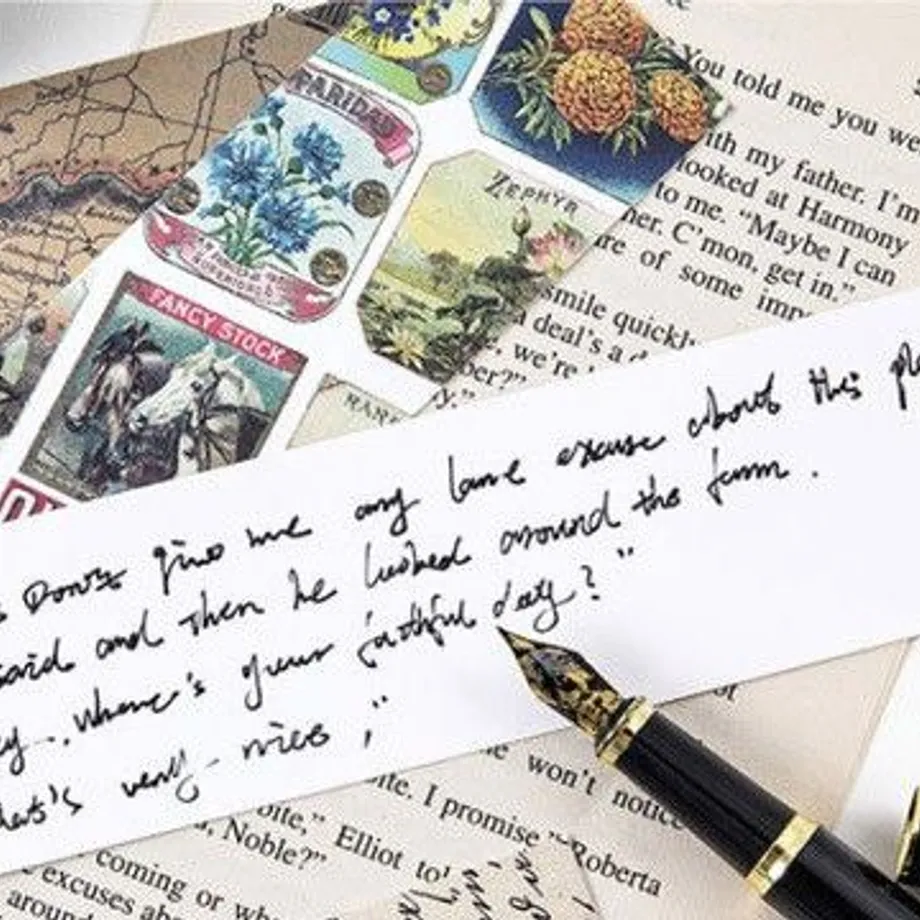 PARIDAS
ZEPHYR
FANCY STOCK
RARE
You told me you we
ith my father. I'm
looked at Harmony
to me. "Maybe I can
her. C'mon, get in."
re of some imp
smile quickly
a deal's a
, we're
ber?"
y."
Don't give me any lame excuse about this pl
said and then he looked around the farm.
Where's your faithful dog?"
that's very nice,"
e won't notice
ite. I promise "Roberta
oite," Elliot to
, Noble?"
coming or wh
excuses ab
around